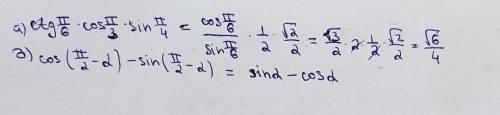 а) ctg π/6 · cos π/3 · sin π/4 = cos π/6 / sin π/6 · 1/2 · √2/2 = √3/2 · 2 · 1/2 · √2/2 = √6/4
з) cos(π/2 - α) - sin(π/2 - α) = sinα - cosα